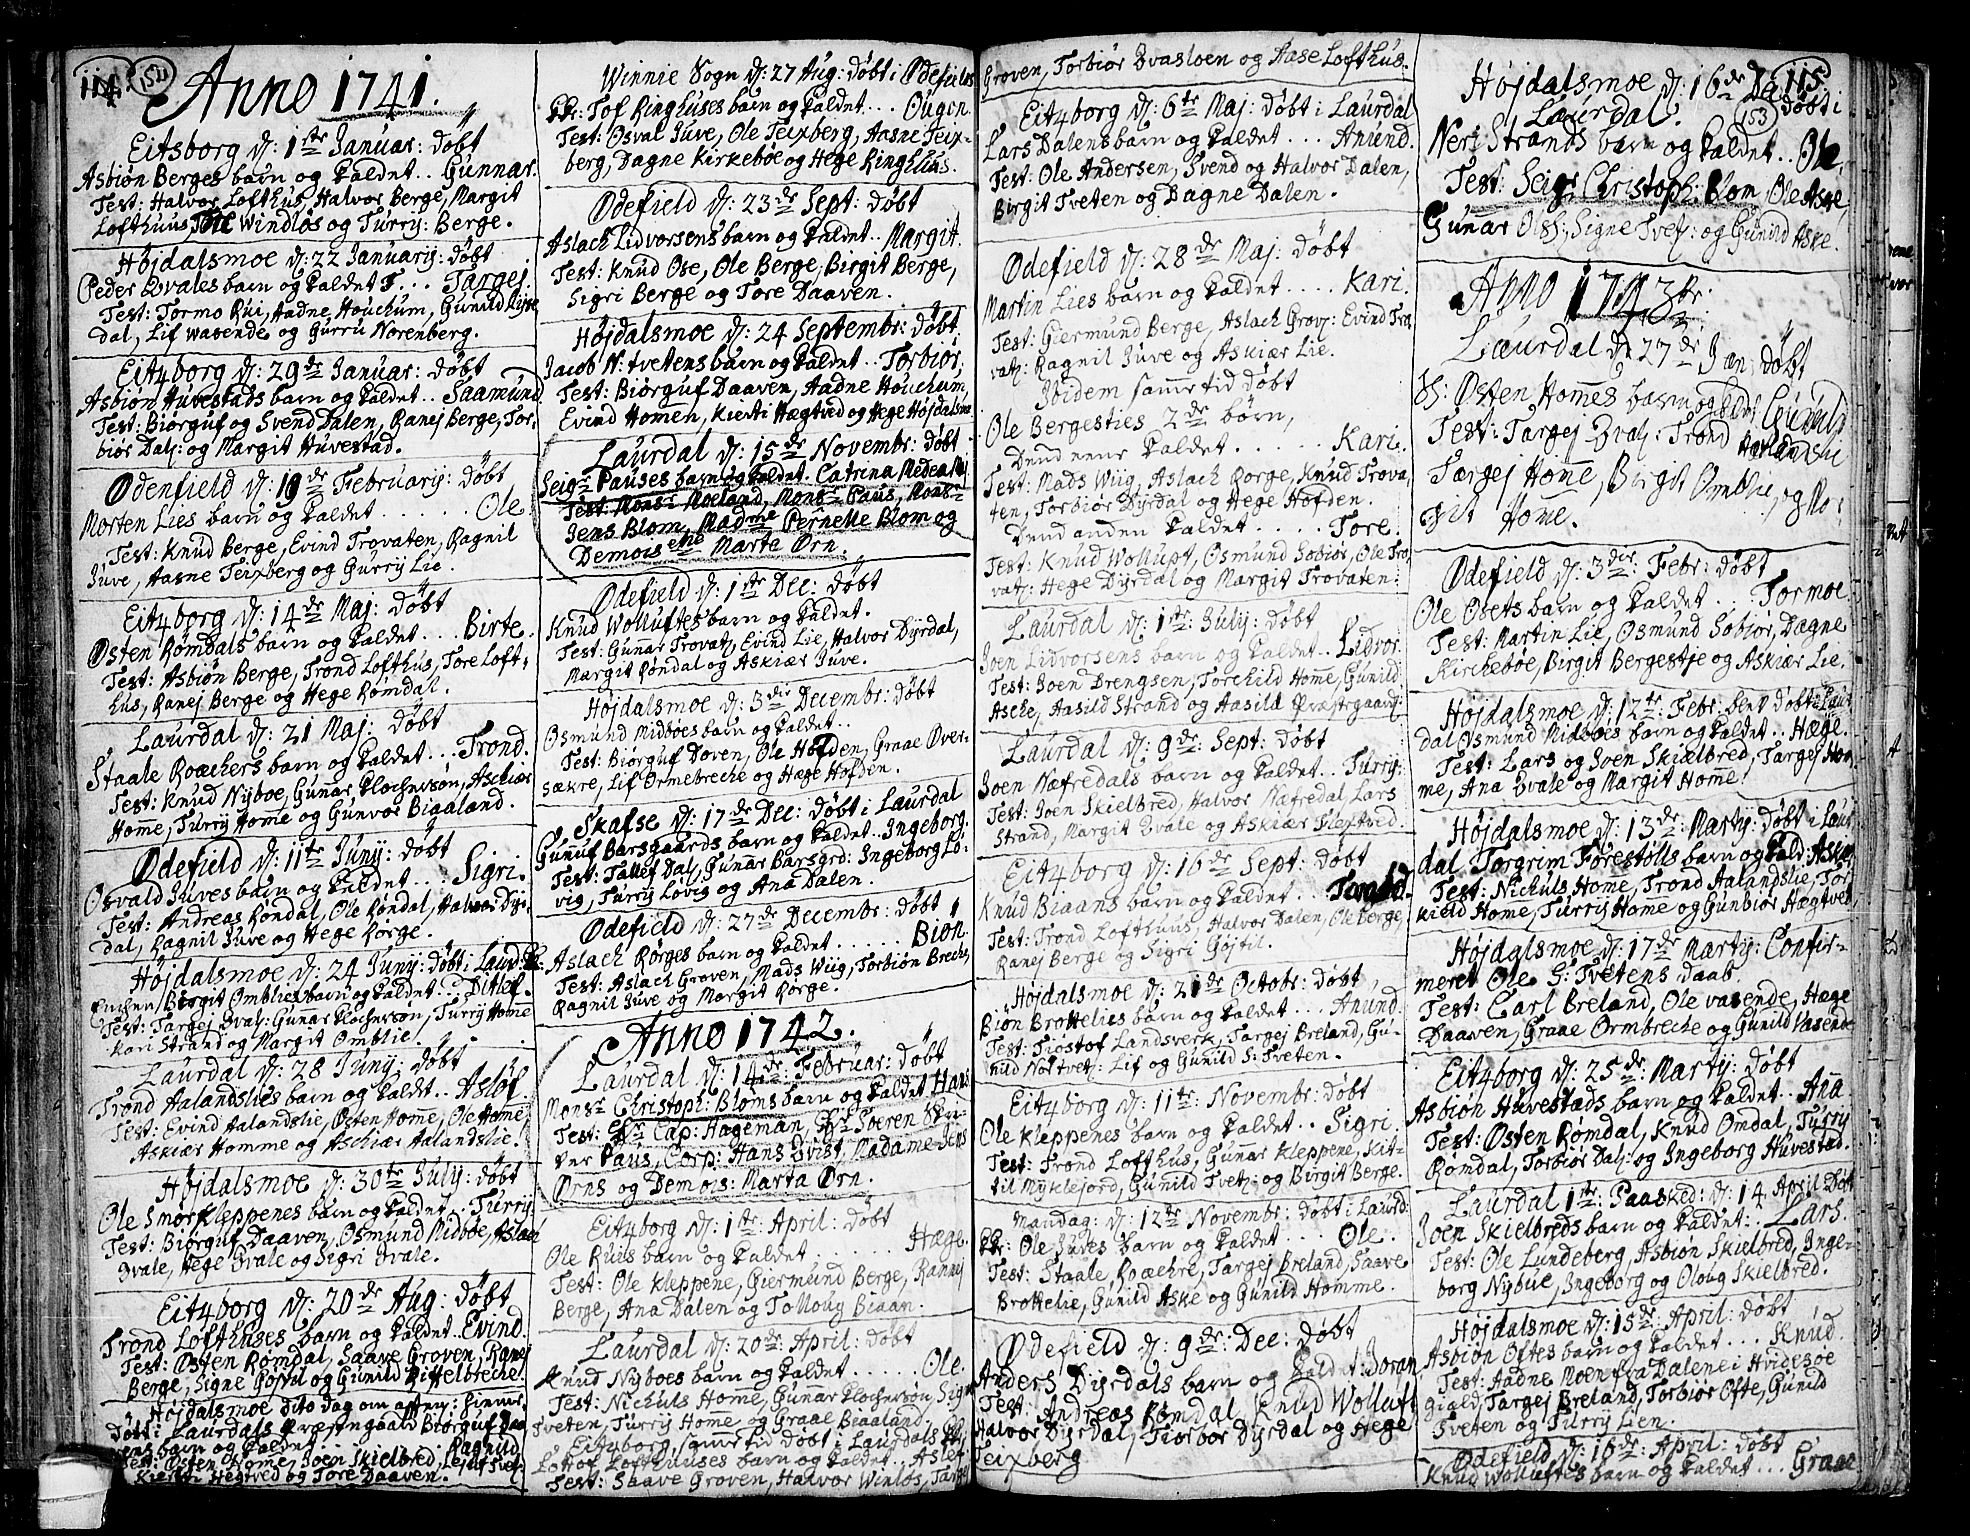 114.
150
Anno 1741.
Eitsborg d: 1ste Januar: døbt
Asbiøn Berges barn og kaldet.. Gunnar.
Test: Halvor Lofthus, Halvor Berge, Margit
Lofthuus, Windløs og Turrj: Berge.
Højdalsmoe d: 22 Januarij: døbt
Peder Qvales barn og kaldet... Targej.
Test: Tormo Rui, Aadne Houchum, Gunild
dal, Lif Wasende og Gurru Norenberg.
Eitzborg d: 29de Januar: døbt
Asbiøn Huvestads barn og kaldet.. Saamund.
Test: Biørguf og Svend Dalen, Ranej Berge, Tor-
biør Dal: og Margit Huvestad.
Ødenfield d: 19de Februarij: døbt
Morten Lies barn og kaldet...... Ole
Test: Knud Berge, Evind Trovaten, Ragnil
Juve, Aasne Teixberg og Gurrij Lie.
Eitzborg d: 14de Maj: døbt
Østen Rømdals barn og kaldet... Birte.
Test: Asbiøn Berge, Trond Lofthus, Tore Loft-
hus, Ranej Berge og Hege Rømdal.
Laurdal d: 21 Maj: døbt
Staale Roæchers barn og kaldet... Trond.
Test: Knud Nyboe, Gunar Klochersøn, Aschiær
Homme, Turrij Home og Gunvor Biaaland.
Ødefield d: 11te Junij: døbt
Osvald Juves barn og kaldet... Sigri.
Test: Andreas Røndal, Ole Røndal, Halvor Dyr-
dal, Ragnil Juve og Hege Rørge.
Højdalsmoe d: 24 Junij: døbt i Laurd:
Birgit Omblies barn og kaldet.. Ditlef.
Test: Targej Qval: Gunar Klochersøn, Turrij Home
Kari Strand og Margit Omblie.
Laurdal d: 28 Junij: døbt
Trond Aalandslies barn og kaldt.. Asløf
Test: Evind Aalandslie, Østen Home, Ole Home,
Askiær Homme og Aschiær Aalandslie.
Højdalsmoe d: 30te Julij: døbt
Ole Smørkleppenes barn og kaldet.. Turrij.
Test: Biørguf Daaven, Osmund Midbøe, Aslac
Qvale, Hege Qvale og Sigri Qvale.
Eitzborg d: 20de Aug: døbt
Trond Lofthuses barn og kaldet.. Evind
Test: Østen Rømdal, Saave Groven, Ranej
Berge, Signe Gøjtil og Gunild
Højdalsmoe dito dag om afteny:
døbt i Laurdals Præstegaald Biørguf
barn og kaldet... Ragnild,
Test: Østen Home, Joen Skielbred,
Hegtved og Tore Daaven.
Winnie Sogn d: 27 Aug: døbt i Ødefield
Tof Ringhuses barn og kaldet... Ougon.
Test: Osval Juve, Ole Teixberg, Aasne Teix-
berg, Dagne Kirkebøe og Hege Ringhuus.
Ødefield d: 23de Sept: døbt
Aslach Lidvorsens barn og kaldet.. Margit.
Test: Knud Ose, Ole Berge, Birgit Berge,
Sigri Berge og Tore Daaven.
Højdalsmoe d: 24 Septembr: døbt
Jacob N. tvetens barn og kaldet.. Torbiør,
Test: Biørguf Daaven, Aadne Houchum,
Evind Homen, Kiersti Hægtved og Hege Højdalsmo
Laurdal d: 15de Novembr: døbt
Seigr Pauses barn og kaldet. Catrina Medea Maj
Test: Monsr Moeland, Monsr Paus, Monsr
Jens Blom, Madme Pernelle Blom og
Demoiselle Marte Ørn.
Ødefield d: 1ste Dec: døbt
Knud Wolluftes barn og kaldet.
Test: Gunar Trovat, Evind Lie, Halvor Dyrdal,
Margit Røndal og Askiær Juve.
Højdalsmoe d: 3die Decembr: døbt
Osmund Midbøes barn og kaldet..
Test: Biørguf Doven, Ole Hofden, Graae Over-
sækre, Lif Ormebreche og Hege Hofden.
Skafse d: 17de Dec: døbt i Laurdal
Gunuf Barsgaards barn og kaldet.. Ingeborg.
Test: Tallef Dal, Gunar Barsgrd: Ingeborg Lo-
vig, Turrij Lovig og Ana Dalen.
Ødefield d: 27de Decembr: døbt
Aslach Rørges barn og kaldet...... Biøn.
Test: Aslach Groven, Mads Wiig, Torbiøn Breche,
Ragnil Juve og Margit Rørge.
Anno 1742.
Laurdal d: 14de: Februar: døbt
Monsr Christoph: Bloms barn og kaldet Hans
Test: Hr Cap: Hageman, Hr Søeren
Paus, Corp: Hans Qvist, Madame Jens
Ørns og Demois: Marta Ørn.
Eitzborg d: 1ste: April: døbt
Ole Ruis barn og kaldet...... Hæge.
Test: Ole Kleppene, Giermund Berge, Rannej
Berge, Ana Dalen og Tolloug Biaan.
Laurdal d: 20de: April: døbt
Knud Nyboes barn og kaldet...... Ole.
Test: Nichuls Home, Gunar Klochersøn, Signe
Tveten, Turrij Home og Graae Biaaland.
Eitzborg, same tid døbt i Laurdals
Lofthuuses barn og kaldet.. Aslef
Test: Saave Groven, Halvor Winløs, Targe
Groven, Torbiør Qvasloen og Aase Lofthus.
Eitzborg d: 6te Maj: døbt i Laurdal
Lars Dalens barn og kaldet.... Anund.
Test: Ole Andersen, Svend og Halvor Dalen,
Birgit Tveten og Dagne Dalen.
Ødefield d: 28de Maj: døbt
Martin Lies barn og kaldet.... Kari.
Test: Giermund Berge, Aslach Grov: Evind Tro-
vat: Ragnil Juve og Askiær Lie.
Ibidem same tid døbt
Ole Bergesties 2de børn,
Dend eene kaldet...... Kari.
Test: Mads Wiig, Aslach Rørge, Knud Trova-
ten, Torbiør Dyrdal og Hege Hofden.
Dend anden kaldet...... Tore.
Test: Knud Wolluft, Osmund Sobiør, Ole Tro-
vat: Hege Dyrdal og Margit Trovaten:
Laurdal d: 1ste: Julij: døbt
Joen Lidvorsens barn og kaldet.. Lidvor.
Test: Joen Drengsen, Torchild Home, Gunild
Asche, Aasild Strand og Aasild Præstgaard:
Laurdal d: 9de: Sept: døbt
Joen Næfredals barn og kaldet.. Turrij:
Test: Joen Skielbred, Halvor Næfredal, Lars
Strand, Margit Qvale og Askiær
Eitzborg d: 16de Sept: døbt
Knud Biaans barn og kaldet...
Test: Trond Lofthuus, Halvor Dalen, Ole Berge,
Ranej Berge og Sigri Gøjtil.
Højdalsmoe d: 21de Octobr: døbt
Biøn Brottelies barn og kaldet... Anund.
Test: Tiostof Landsverk, Targej Breland, Gu-
nild Nostvet: Lif og Gunild S: Tveten.
Eitzborg d: 11te: Novembr: døbt
Ole Kleppenes barn og kaldet.. Sigri.
Test: Trond Lofthus, Gunar Kleppene, Kit-
til Myklejord, Gunild Tvet: og Birgit Berge.
Mandag: d: 12te Novembr: døbt i Laurd:
Ole Juves barn og kaldet.... Ole.
Test: Staale Roæchre, Targej Breland, Saave
Brottelie, Gunild Aske og Gunild Homme.
Ødefield d: 9de: Dec: døbt
Anders Dyrdals barn og kaldet: Joran
Test: Andreas Rømdal, Knud Wolluft
Halvor Dyrdal, Torbor Dyrdal og Hege
Teixberg
115
153
Højdalsmoe d: 16de døbt i
Laurdal.
Nerj Strands barn og kaldet.. Ole
Test: Seigr Christoph: Blom, Ole Aske,
Gunar Ols: Signe Tvet: og Gunild Aske.
Anno 1743
Laurdal d: 27de Jan: døbt
Østen Homes barn og Gunuld
Test: Targej Qval: Trond Aalandslie
Targej Home, Birgit Omblie, og Mar-
git Home.
Ødefield d: 3die: Febr: døbt
Ole Osets barn og kaldet... Tormoe.
Test: Martin Lie, Osmund Sobiør, Dægne
Kirchebøe, Birgit Bergestje og Askiær Lie.
Højdalsmoe d: 12te: Febr: blev døbt i Laur
dal Osmund Midboes barn og kaldet.. Hæge.
Test: Lars og Joen Skielbred, Targej Hom-
me, Ana Qvale og Margit Home.
Højdalsmoe d: 13de: Martij: døbt i Laur
dal Torgrim Forestølls barn og kald:
Test: Nichuls Home, Trond Aalandslie, Tor
kield Home, Turrij Home og Gunbiør Hægtved
Højdalsmoe d: 17de Martij: Confir-
meret Ole S: Tvetens daab
Test: Carl Breland, Ole Vasende, Hæge
Daaven, Graae Ormbreche og Gunild Vasende
Eitzborg d: 25de: Martij: døbt
Asbiøn Huvestads barn og kaldet.. Ana.
Test: Østen Rømdal, Knud Omdal, Turrij
Rømdal, Torbiør Dal: og Ingeborg Huvestad.
Laurdal 1ste: Paasked: d: 14 April Døbt
Joen Skielbreds barn og kaldet.. Lars.
Test: Ole Lundeberg, Asbiøn Skielbred, Inge-
borg Nybue, Ingeborg og Oloug Skielbred.
Højdalsmoe d: 15de: April: døbt
Asbiøn Oftes barn og kaldet... Knud.
Test: Aadne Moen fra Dalene i Hvidesøe
Giald, Targej Breland, Torbiør Ofte, Gunild
Tveten og Turrij Lien.
Ødefield d: 16de: April: døbt
Knud Wolluftes barn og kaldet... Graae